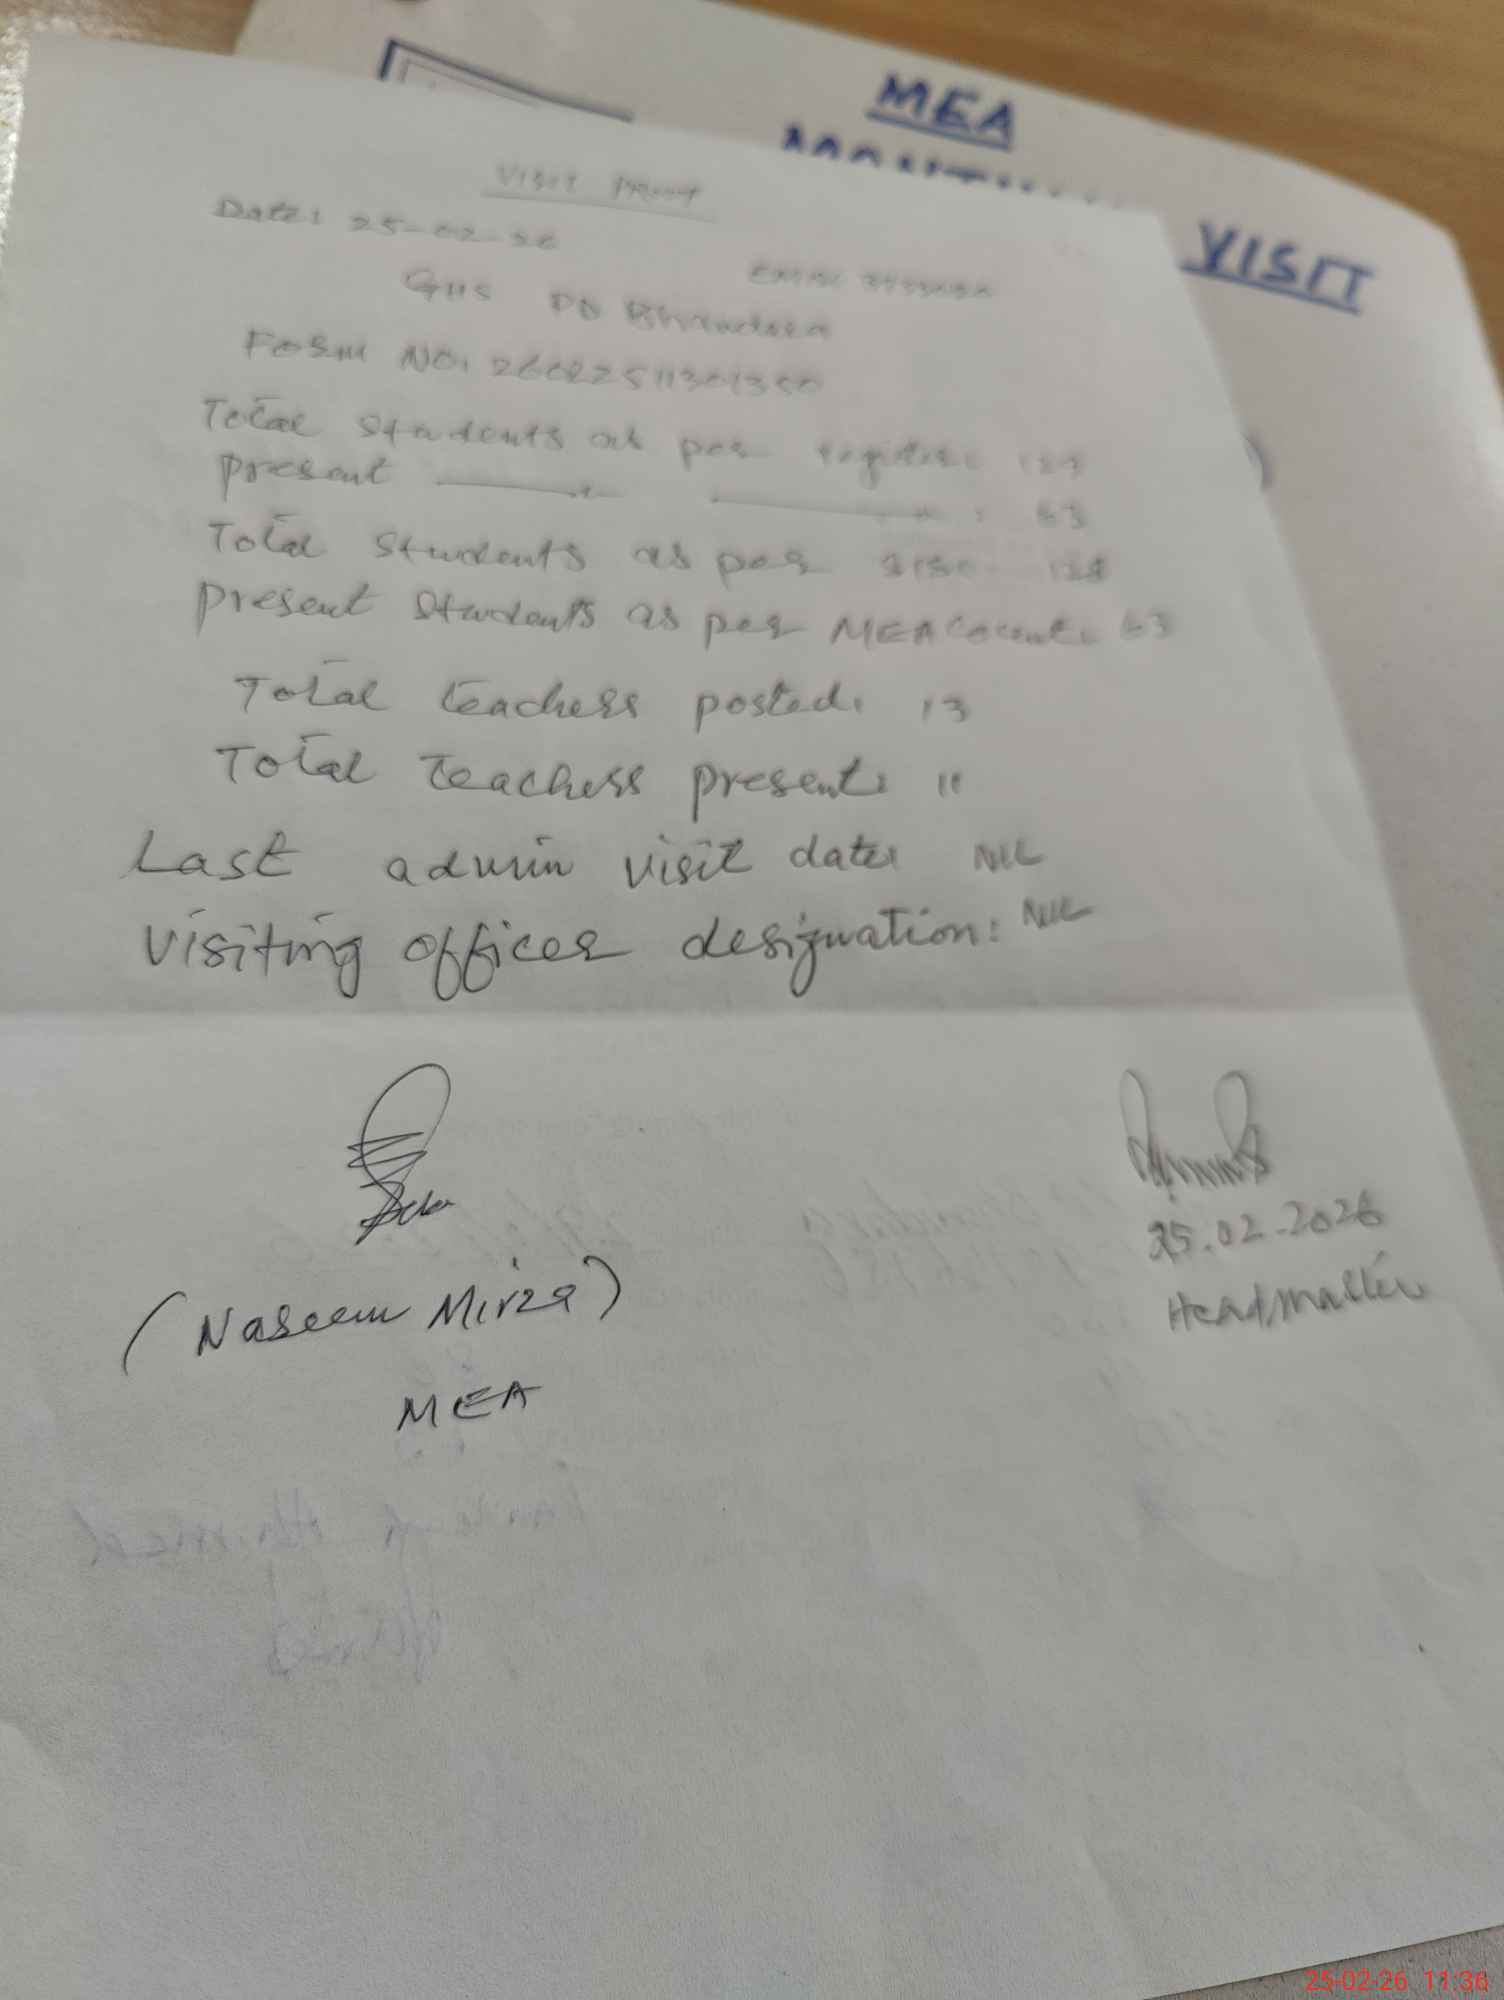 MEA
VISIT
Visit Proof
Date: 25-02-26
GHS PD Bhandara
Form No: 26022511301350
Total Students as per register:
Present : 63
Total Students as per SISO
Present Students as per MEA Count: 63
Total teachers posted: 13
Total Teachers present: 11
Last admin visit date: NIL
Visiting officer designation: NIL
(Naseem Mirza)
MEA
25.02.2026
Headmaster
25-02-26 11:36